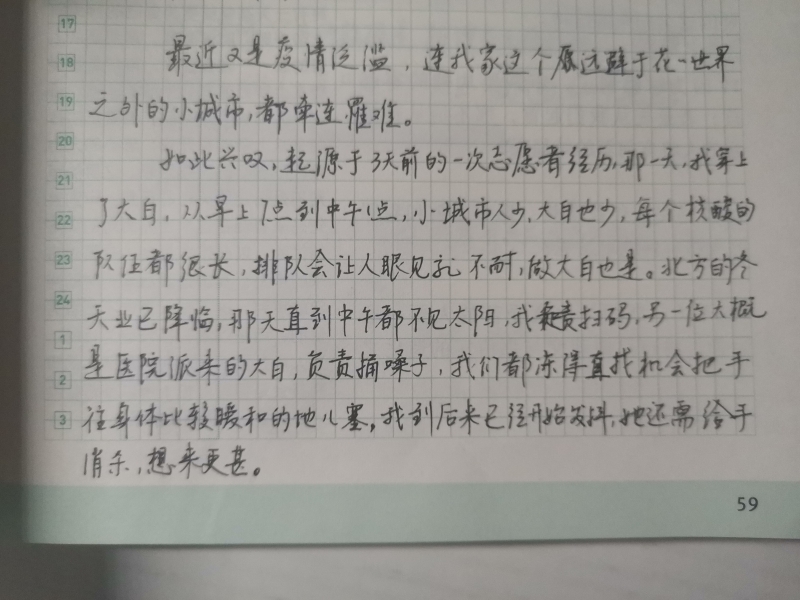 17
18 最近又是疫情泛滥，连我家这个原远避于花一世界
19 之外的小城市，都牵连罹难。
20 如此兴叹，起源于3天前的一次志愿者经历，那一天，我穿上
21 了大白，从早上7点到中午1点，小城市人少，大白也少，每个核酸的
22
23 队伍都很长，排队会让人眼见 不耐，做大白也是。北方的冬
24 天业已降临，那天直到中午都不见太阳，我负责扫码，另一位大概
1 是医院派来的大白，负责捅嗓子，我们都冻得直找机会把手
2
3 往身体比较暖和的地儿塞，我到后来已经开始发抖，她还需给手
消杀，想来更甚。
59